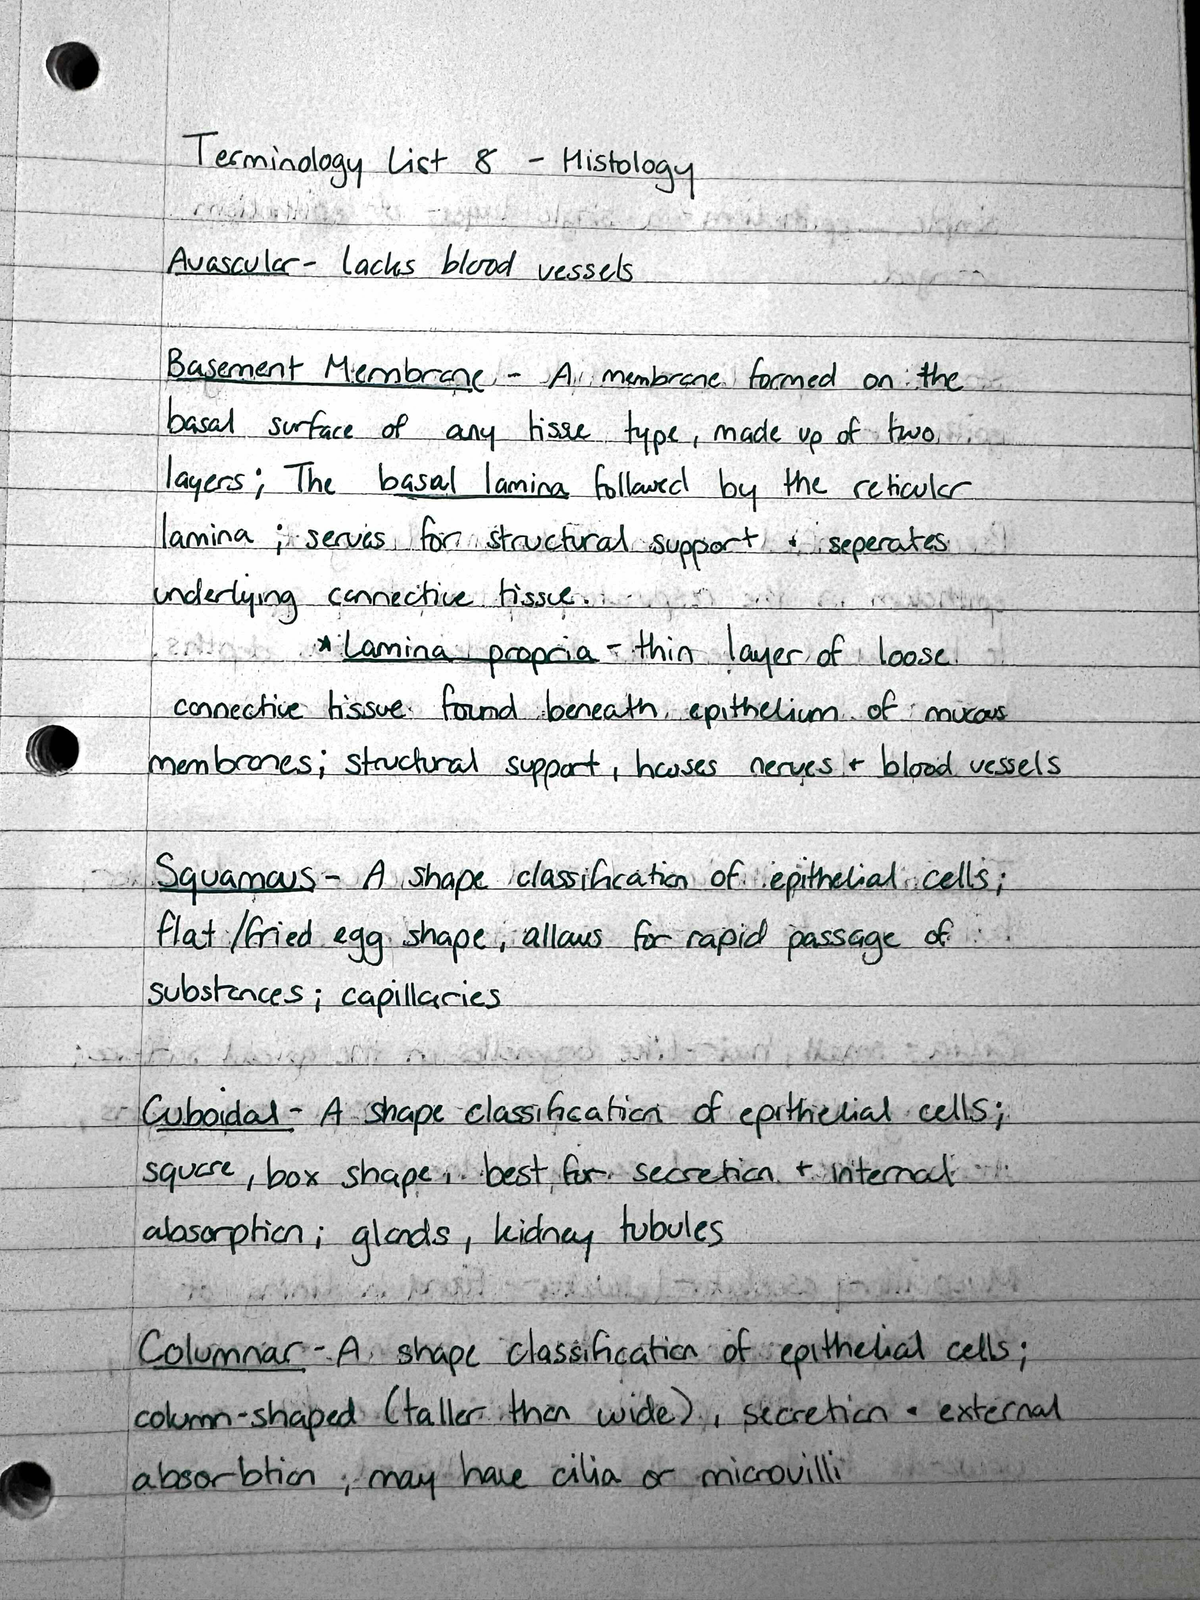 Terminology List 8 - Histology
Avascular - lacks blood vessels
Basement Membrane - A membrane formed on the
basal surface of any tissue type, made up of two
layers; The basal lamina followed by the reticular
lamina; serves for structural support + seperates
underlying connective tissue.
* Lamina propria - thin layer of loose
connective tissue found beneath epithelium of mucous
membranes; structural support, houses nerves + blood vessels
Squamous - A shape classification of epithelial cells;
flat /fried egg shape, allows for rapid passage of
substances; capillaries
Cuboidal - A shape classification of epithelial cells;
square, box shape, best for secretion + internal
absorption; glands, kidney tubules
Columnar - A shape classification of epithelial cells;
column-shaped (taller than wide), secretion + external
absorbtion; may have cilia or microvilli